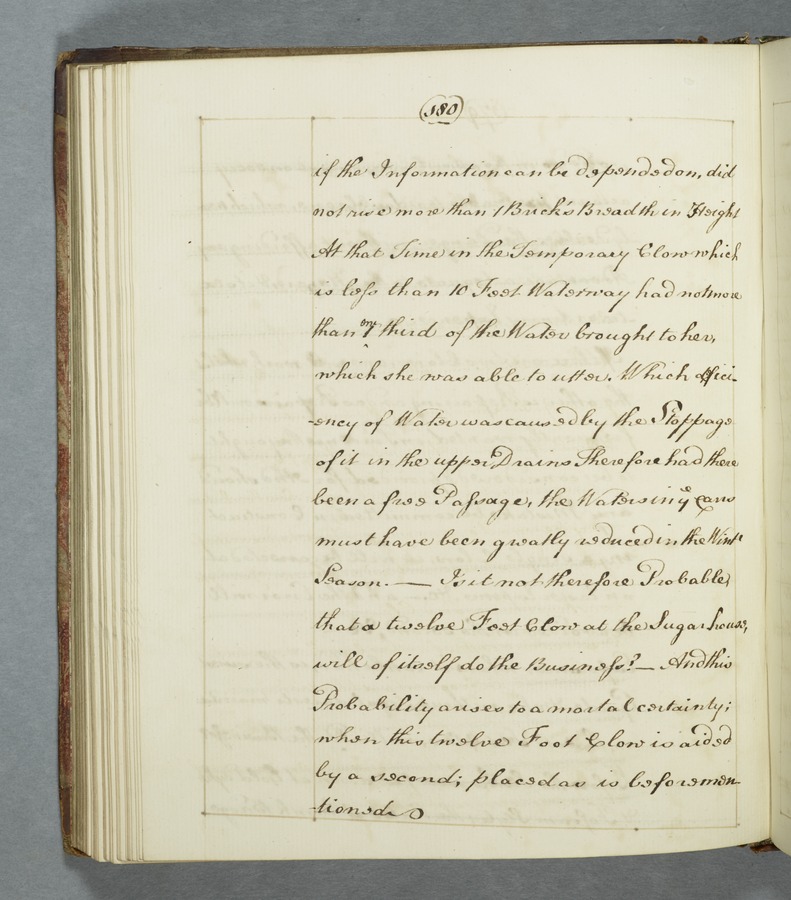 (180)
if the Information can be depended on, did
not rise more than 1 Brick's Breadth in Height
At that Time in the Temporary Clow which
is less than 10 Feet Waterway had not more
than one third of the Water brought to her,
which she was able to utter. Which defici-
-ency of Water was caused by the Stoppage
of it in the upper Drains Therefore had there
been a free Passage, the Waters in ye Cars
must have been greatly reduced in the Wintr
Season. — Is it not therefore Probable,
that a twelve Feet Clow at the Sugar house,
will of itself do the Business? — And this
Probability arises to a mortal certainty;
when this twelve Foot Clow is aided
by a second; placed as is before men
-tioned